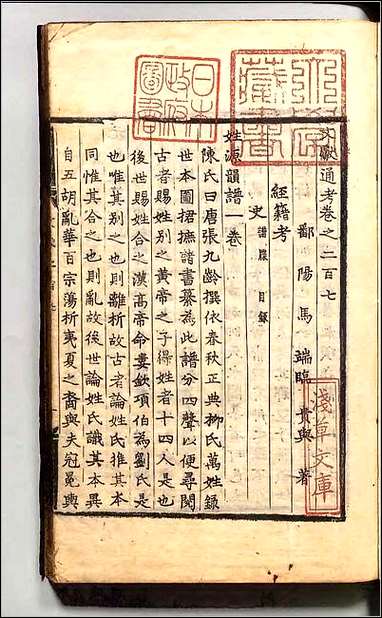 文獻通考卷之二百七
鄱陽馬端臨貴與著
經籍考
史 譜牒 目錄
姓源韻譜一卷
陳氏曰唐張九齡撰依春秋正典柳氏萬姓錄
世本圖捃摭諸書纂為此譜分四聲以便尋閱
古者賜姓別之黃帝之子得姓者十四人是也
後世賜姓合之漢高帝命婁敬項伯為劉氏是
也惟其別之也則離析故古者論姓氏推其本
同惟其合之也則亂故後世論姓氏識其本異
自五胡亂華百宗蕩析夷夏之裔與夫冠冕輿
日本政府圖書
淺草文庫
藏書